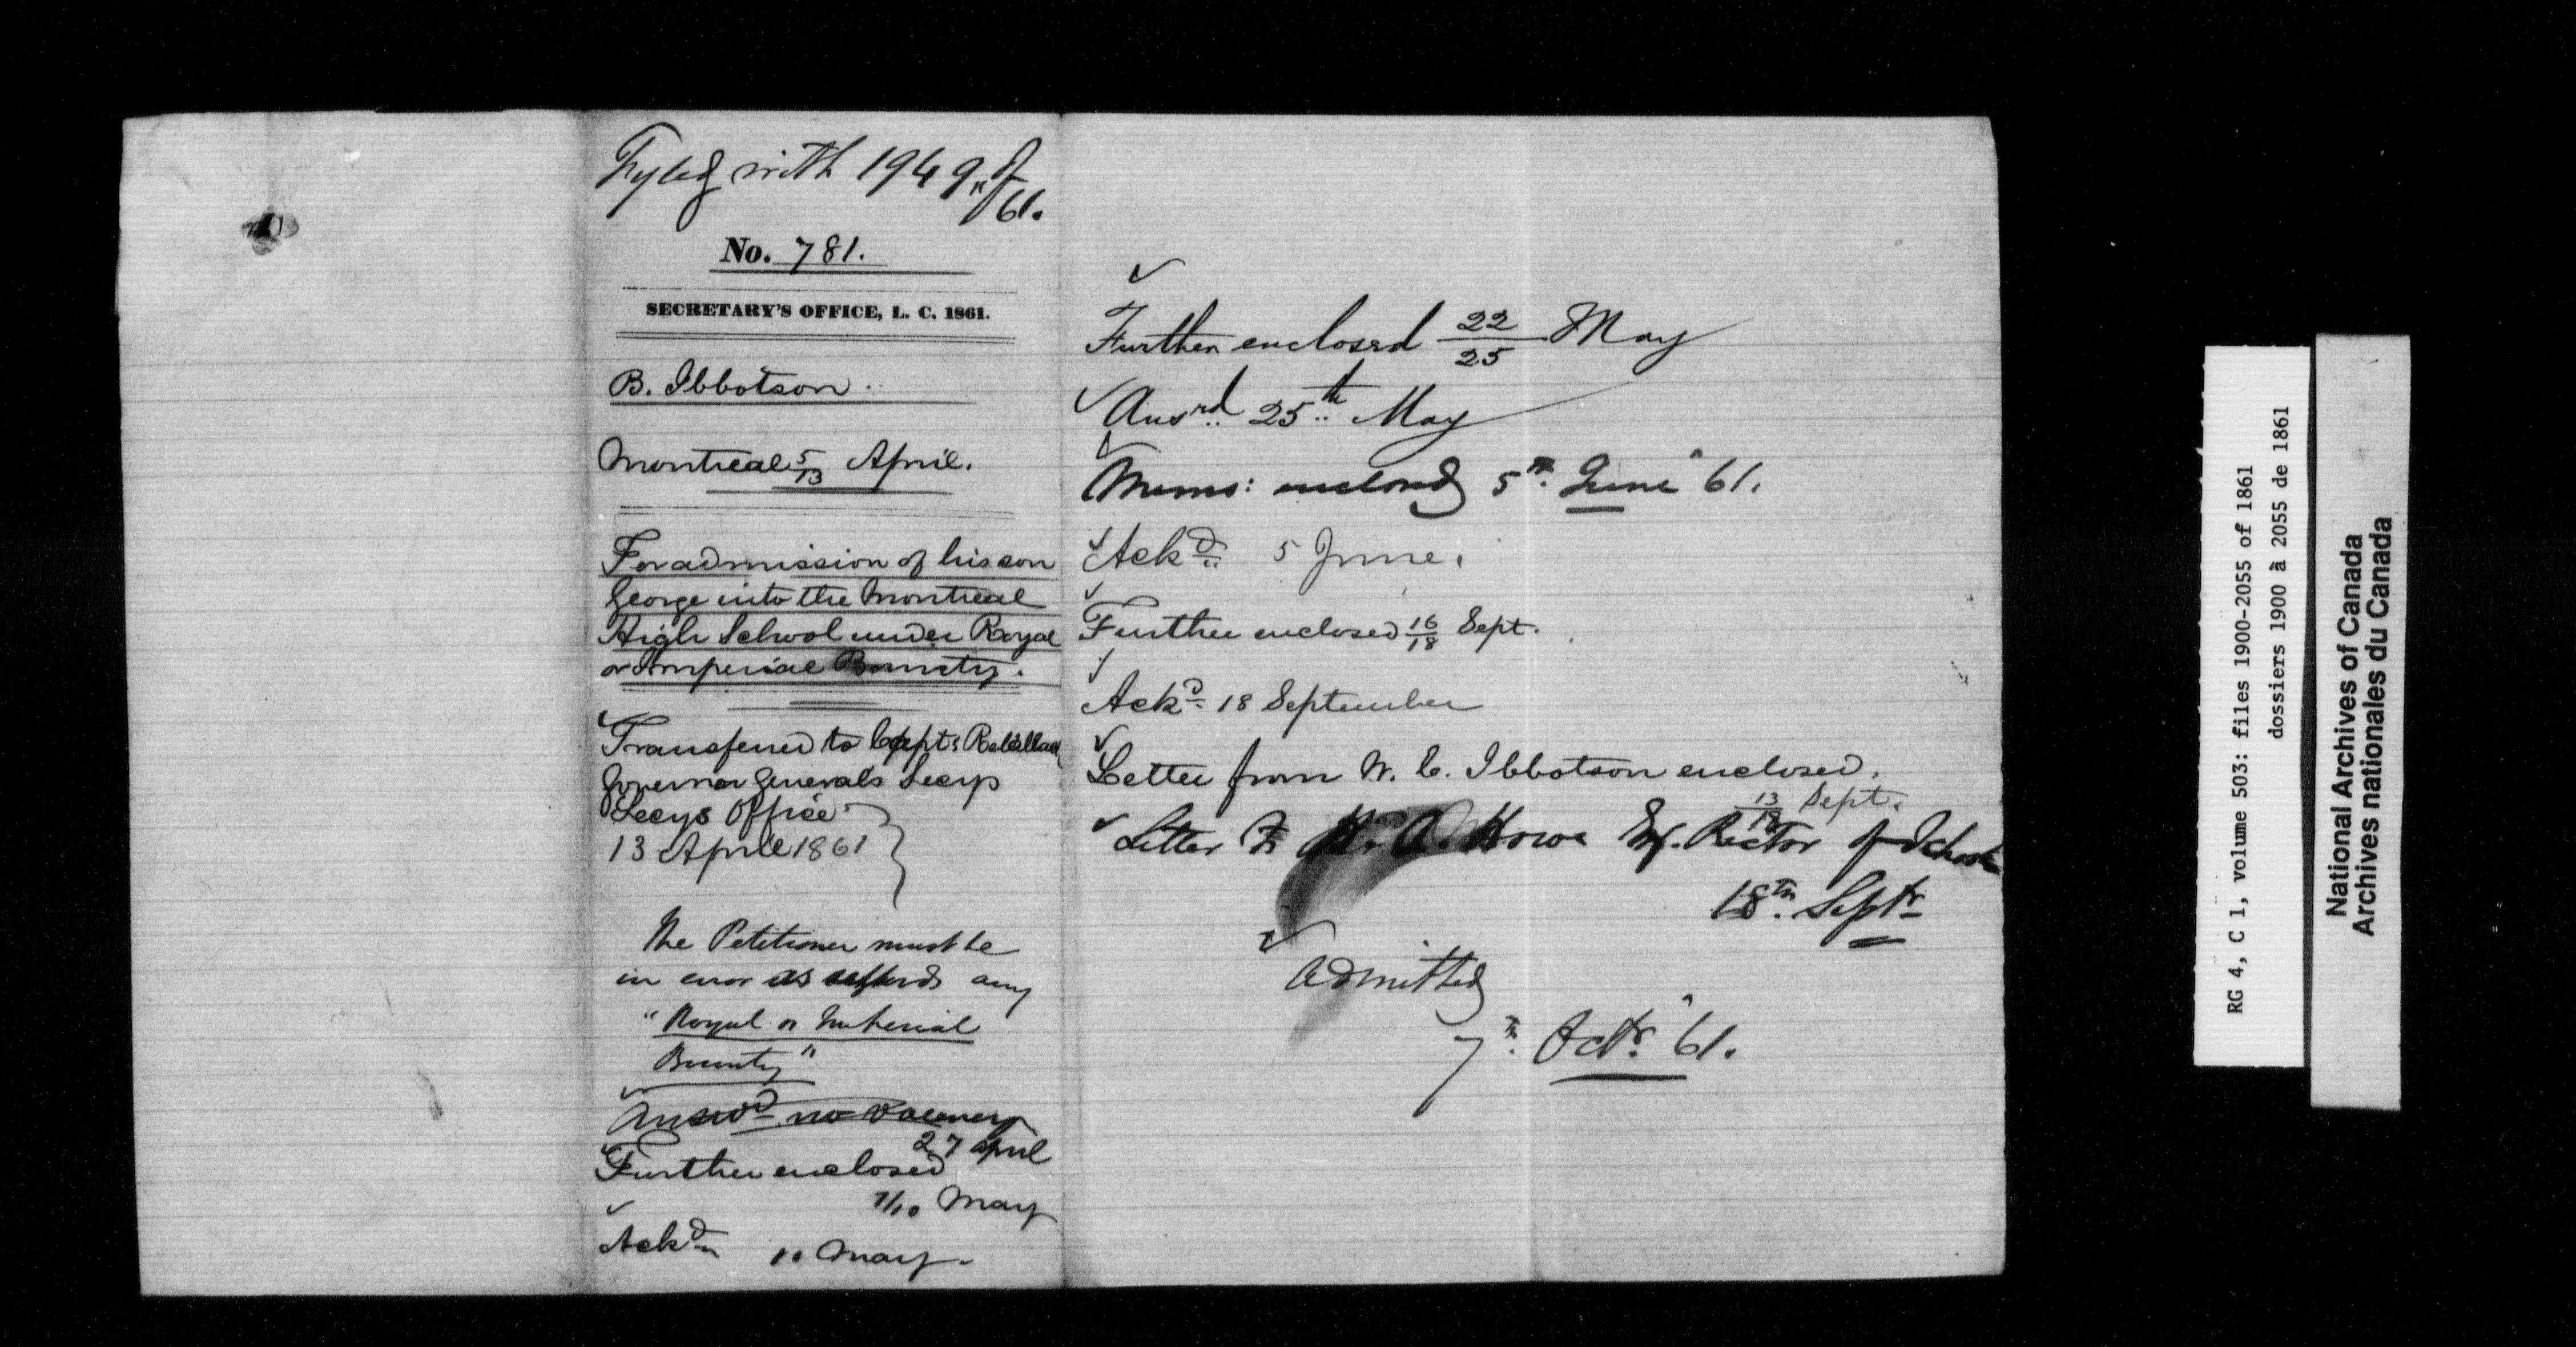 Fyled with 1949 of
61.
No. 781.
SECRETARY'S OFFICE, L. C. 1861.
B. Ibbotson.
Montreal 5/13 April.
For admission of his son
George into the Montreal
High School under Royal
or Imperial Bounty.
Transferred to Capt:
Governor General's Secy
Secys Office
13 April 1861
The Petitioner must be
in error as regards any
"Royal or Imperial
Bounty"
Answd no vacancy
27 April
Further enclosed
7/10 May
Ackd 10 May.
Further enclosed 22/25 May
Ansrd 25th May
Memo: enclosed 5th June 61.
Ackd 5 June.
Further enclosed 16/18 Sept.
Ackd 18 September
Letter from W. E. Ibbotson enclosed.
13/18 Sept.
Letter Fr H. A. Howe Esq. Rector of School
18th Septr
Admitted
7th Octr 61.
RG 4, C 1, volume 503: files 1900-2055 of 1861
dossiers 1900 à 2055 de 1861
National Archives of Canada
Archives nationales du Canada